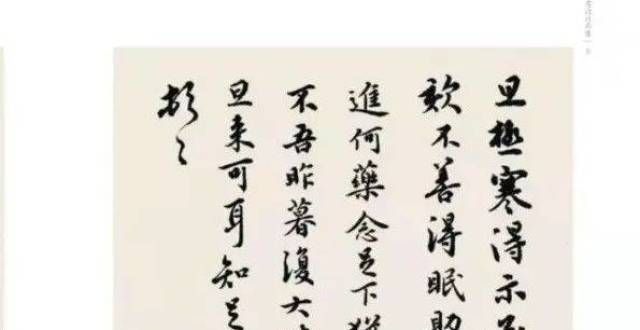 旦極寒得示
欬不善得眠助
進何藥念足下
不吾昨暮復大
旦来可耳知足